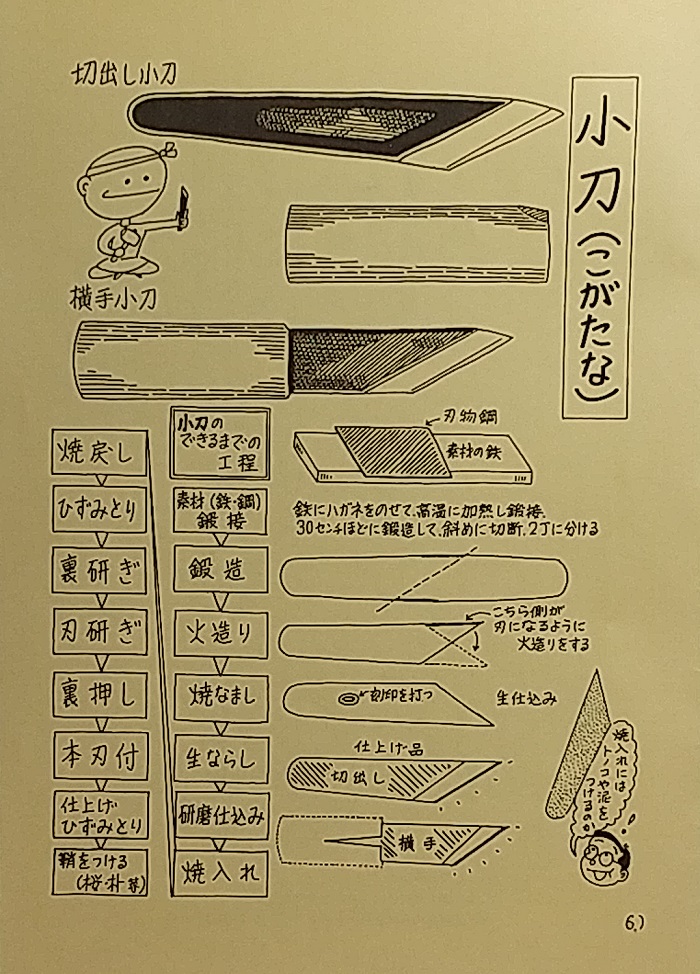 小刀(こがたな)
切出し小刀
横手小刀
小刀の
できるまでの
工程
素材(鉄・鋼)
鍛接
鍛造
火造り
焼なまし
生ならし
研磨仕込み
焼入れ
焼戻し
ひずみとり
裏研ぎ
刃研ぎ
裏押し
本刃付
仕上げ
ひずみとり
鞘をつける
(桜・朴等)
刃物鋼
素材の鉄
鉄にハガネをのせて、高温に加熱し鍛接、
30センチほどに鍛造して、斜めに切断、2丁に分ける
こちら側が
刃になるように
火造りをする
刻印を打つ
生仕込み
仕上げ品
切出し
横手
焼入れには
トノコや泥を
つけるのか